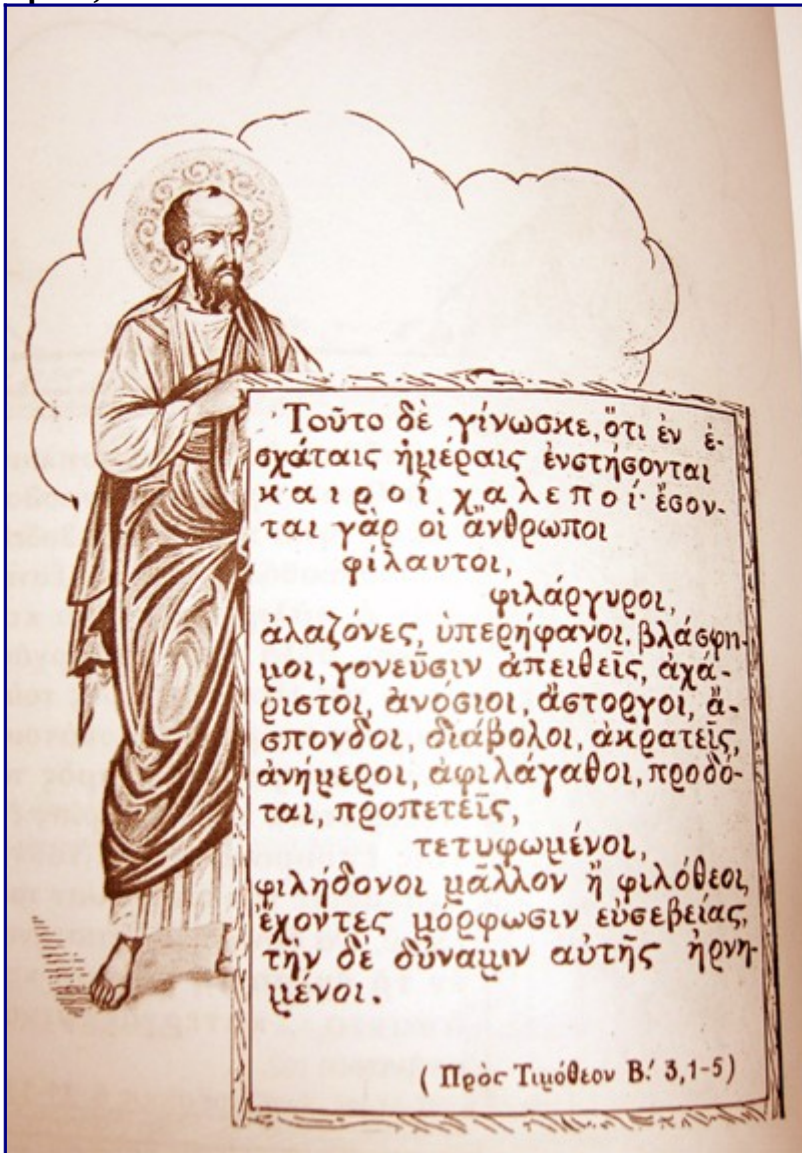 Τοῦτο δὲ γίνωσκε, ὅτι ἐν ἐ-
σχάταις ἡμέραις ἐνστήσονται
καιροὶ χαλεποί· ἔσον-
ται γὰρ οἱ ἄνθρωποι
φίλαυτοι,
φιλάργυροι,
ἀλαζόνες, ὑπερήφανοι, βλάσφη-
μοι, γονεῦσιν ἀπειθεῖς, ἀχά-
ριστοι, ἀνόσιοι, ἄστοργοι, ἄ-
σπονδοι, διάβολοι, ἀκρατεῖς,
ἀνήμεροι, ἀφιλάγαθοι, προδό-
ται, προπετεῖς,
τετυφωμένοι,
φιλήδονοι μᾶλλον ἢ φιλόθεοι,
ἔχοντες μόρφωσιν εὐσεβείας,
τὴν δὲ δύναμιν αὐτῆς ἠρνη-
μένοι.
(Πρὸς Τιμόθεον Β.΄ 3,1-5)